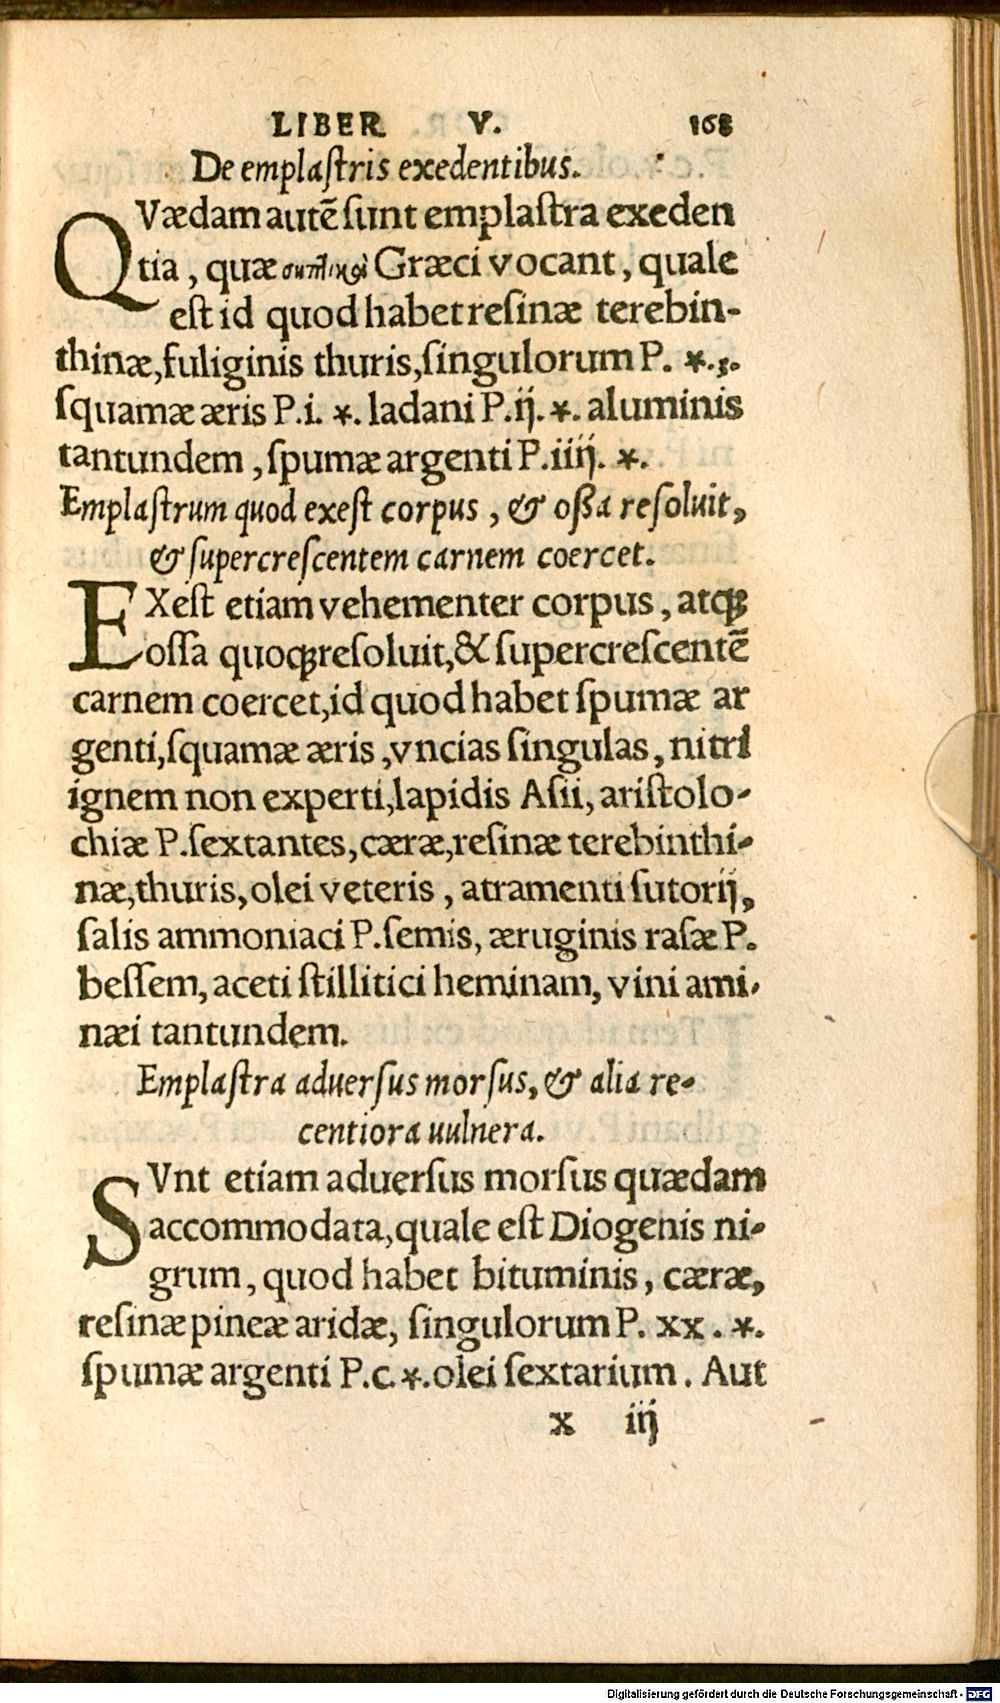 LIBER V. 168
De emplaſtris exedentibus.
QVædam autē ſunt emplaſtra exeden
tia, quæ Græci vocant, quale
eſt id quod habet reſinæ terebin-
thinæ, fuliginis thuris, ſingulorum P. *.
ſquamæ æris P.i. *. ladani P.ij. *. aluminis
tantundem, ſpumæ argenti P.iiij. *.
Emplaſtrum quod exeſt corpus, & oſſa reſoluit,
& ſupercreſcentem carnem coercet.
EXeſt etiam vehementer corpus, atqꝫ
oſſa quoqꝫ reſoluit, & ſupercreſcentē
carnem coercet, id quod habet ſpumæ ar
genti, ſquamæ æris, vncias ſingulas, nitri
ignem non experti, lapidis Aſii, ariſtolo-
chiæ P.ſextantes, cæræ, reſinæ terebinthi-
næ, thuris, olei veteris, atramenti ſutorij,
ſalis ammoniaci P.ſemis, æruginis raſæ P.
beſſem, aceti ſtillitici heminam, vini ami-
næi tantundem.
Emplaſtra aduerſus morſus, & alia re-
centiora uulnera.
SVnt etiam aduerſus morſus quædam
accommodata, quale eſt Diogenis ni-
grum, quod habet bituminis, cæræ,
reſinæ pineæ aridæ, ſingulorum P. xx. *.
ſpumæ argenti P.c. *. olei ſextarium. Aut
x iij
Digitalisierung gefördert durch die Deutsche Forschungsgemeinschaft - DFG